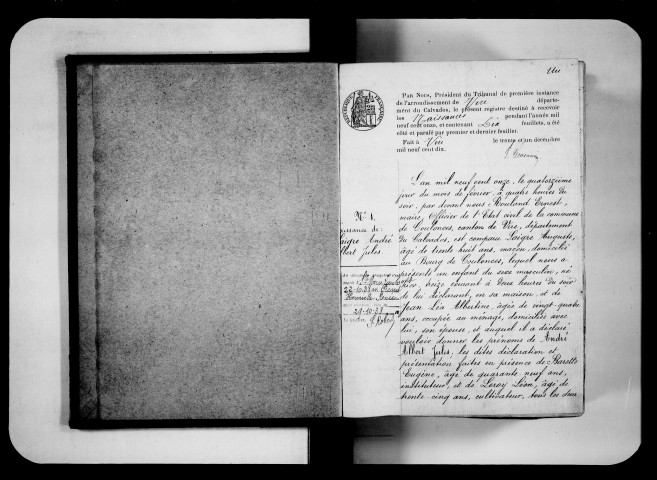 Un
PAR NOUS, Président du Tribunal de première instance
de l'arrondissement de Vire départe-
ment du Calvados, le présent registre destiné à recevoir
les Naissances pendant l'année mil
neuf cent onze, et contenant feuillets, a été
côté et parafé par premier et dernier feuillet.
Fait à Vire le trente et un décembre
mil neuf cent dix.
L'an mil neuf cent onze, le quatorzième
jour du mois de février, à quatre heures du
soir, par devant nous Rouland Ernest,
maire, Officier de l'Etat civil de la commune
de Coulonces, canton de Vire, département
du Calvados, est comparu Laigre Auguste,
âgé de trente huit ans, maçon, domicilié
au Bourg de Coulonces, lequel nous a
présenté un enfant du sexe masculin, né
hier, treize courant à onze heures du soir
de lui déclarant, en sa maison, et de
Jean Léa Albertine, âgée de vingt-quatre
ans, occupée au ménage, domiciliée avec
lui, son épouse, et auquel il a déclaré
vouloir donner les prénoms de André
Albert Jules, les dites déclaration et
présentation faites en présence de
Eugène, âgé de quarante neuf ans,
instituteur, et de Leroy Léon, âgé de
trente-cinq ans, cultivateur, tous les deux
N° 1.
Naissance de
Laigre André
Albert Jules.
22-10-38
24-10-38